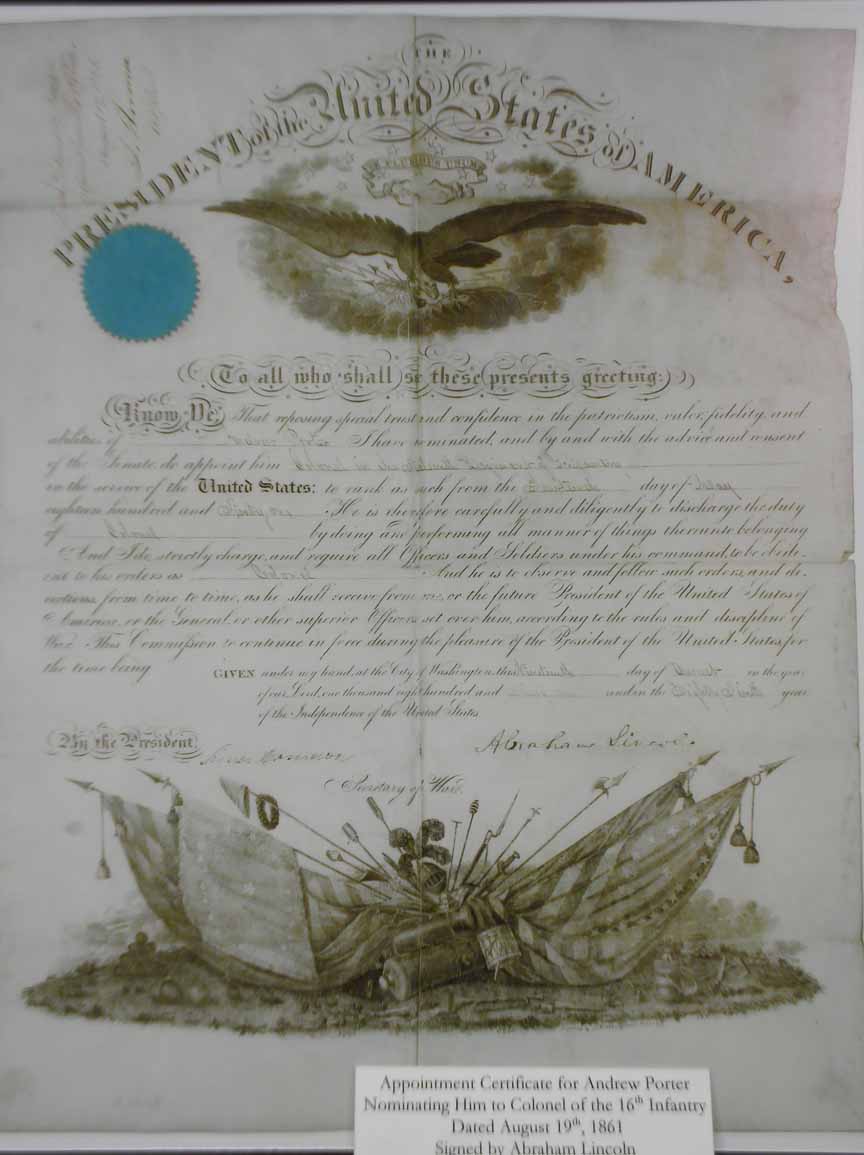 THE
PRESIDENT of the United States of AMERICA,
E PLURIBUS UNUM
To all who shall se these presents greeting:
Know Ye, That reposing special trust and confidence in the patriotism, valor, fidelity, and
abilities of Andrew Porter I have nominated, and by and with the advice and consent
of the Senate, do appoint him Colonel in the Sixteenth Regiment of Infantry
in the service of the United States: to rank as such from the day of May
eighteen hundred and sixty one He is therefore carefully and diligently to discharge the duty
of Colonel by doing and performing all manner of things thereunto belonging
And I do strictly charge, and require all Officers and Soldiers under his command, to be obedi-
ent to his orders as Colonel And he is to observe and follow such orders, and di-
rections, from time to time, as he shall receive from me, or the future President of the United States of
America, or the General, or other superior Officers set over him, according to the rules and discipline of
War. This Commission to continue in force during the pleasure of the President of the United States, for
the time being
GIVEN under my hand, at the City of Washington, this Nineteenth day of August in the year
of our Lord, one thousand eight hundred and and in the Eighty Sixth year
of the Independence of the United States
By the President,
Abraham Lincoln
Simon Cameron
Secretary of War.
Appointment Certificate for Andrew Porter
Nominating Him to Colonel of the 16th Infantry
Dated August 19th, 1861
Signed by Abraham Lincoln